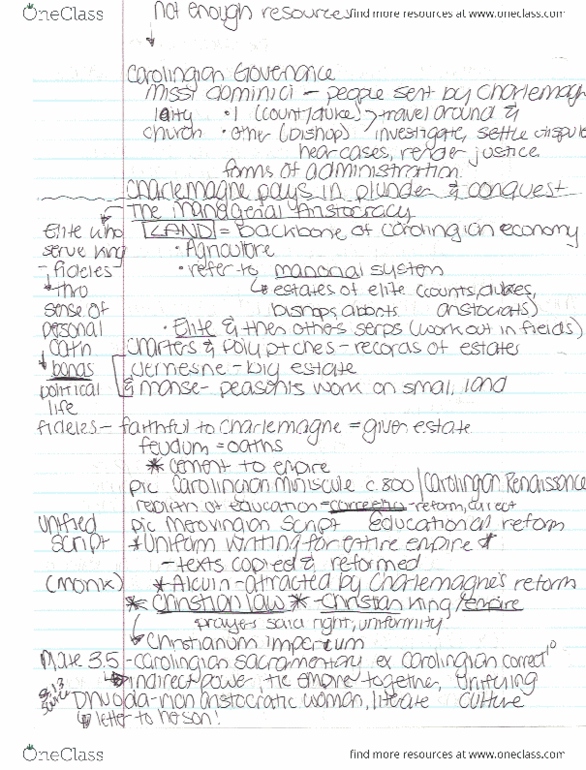 OneClass
not enough resources
find more resources at www.oneclass.com
Carolingian Governance
missi dominici - people sent by Charlemagn
laity • 1 (count/duke) > travel around &
church • other (bishop) investigate, settle dispute
hear cases, render justice
forms of administration
Charlemagne pays in plunder & conquest
The Managerial Aristocracy
Elite who
LAND = backbone of carolingian economy
serve king
• Agriculture
- fideles
• refer to manorial system
thro
estates of elite (counts, dukes,
sense of
bishops, abbots aristocrats)
personal
• Elite & then others serps (work out in fields)
oath
Charters & Polyptches - records of estates
bonds
demesne - big estate
political
& manse - peasonts work on small land
life
fideles - faithful to Charlemagne = given estate
feudum = oaths
* cement to empire
pic Carolingian Miniscule c.800 | Carolingian Renaissance
rebirth of education = correctio - reform, correct
unified
pic Merovingian Script educational reform
script
* Uniform writing for entire empire *
- texts copied & reformed
(monk)
* Alcuin - attracted by Charlemagne's reform
* Christian law * - Christian king/empire
prayers said right, uniformity
Christianum Imperium
Mate 3.5 - carolingian sacramentary ex carolingian correctio
indirect power, tie empire together, unifying
culture
Dhuoda - non aristocratic woman, literate
letter to her son!
OneClass
find more resources at www.oneclass.com